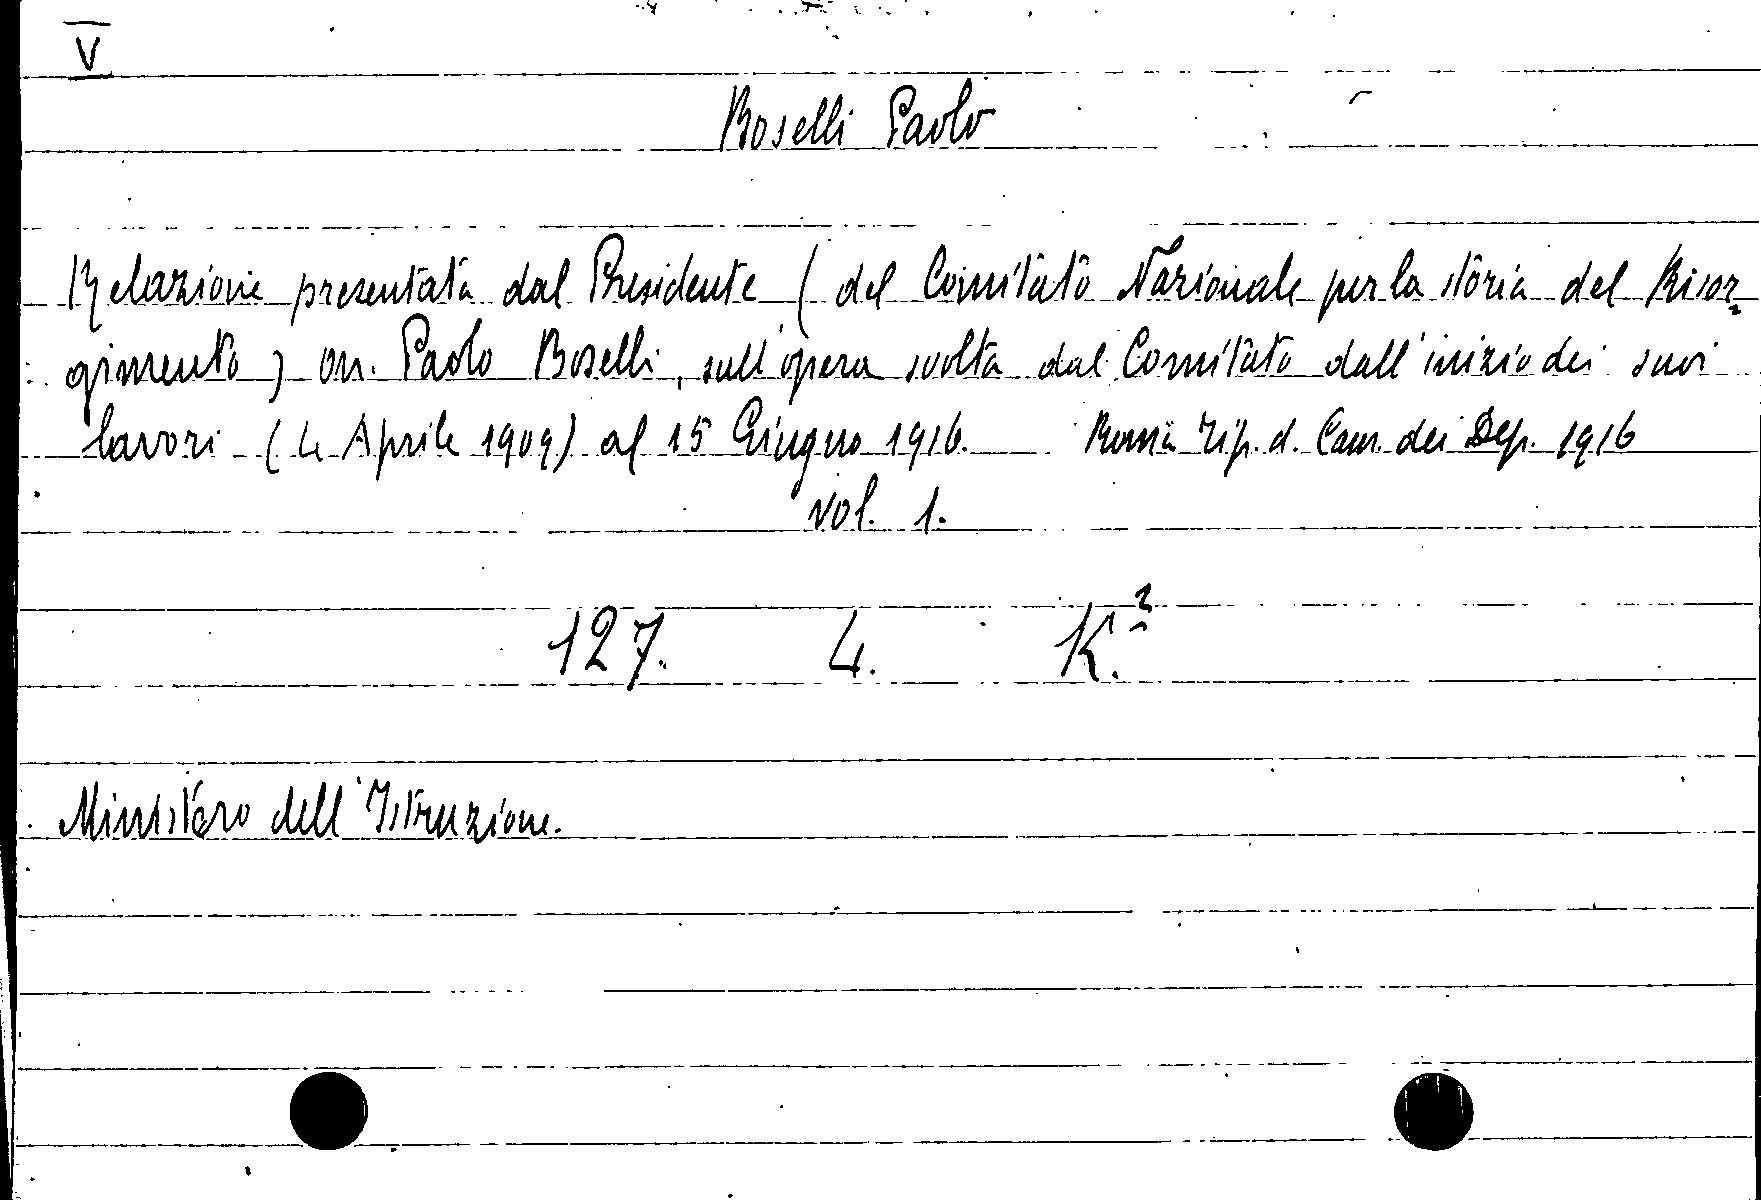 V
Boselli Paolo
Relazione presentata dal Presidente (del Comitato Nazionale per la storia del Risor-
gimento) on. Paolo Boselli, sull'opera svolta dal Comitato dall'inizio dei suoi
lavori (4 Aprile 1909) al 15 Giugno 1916. Roma Tip. d. Cam. dei Dep. 1916
vol. 1.
127. 4. K.²
Ministero dell'Istruzione.